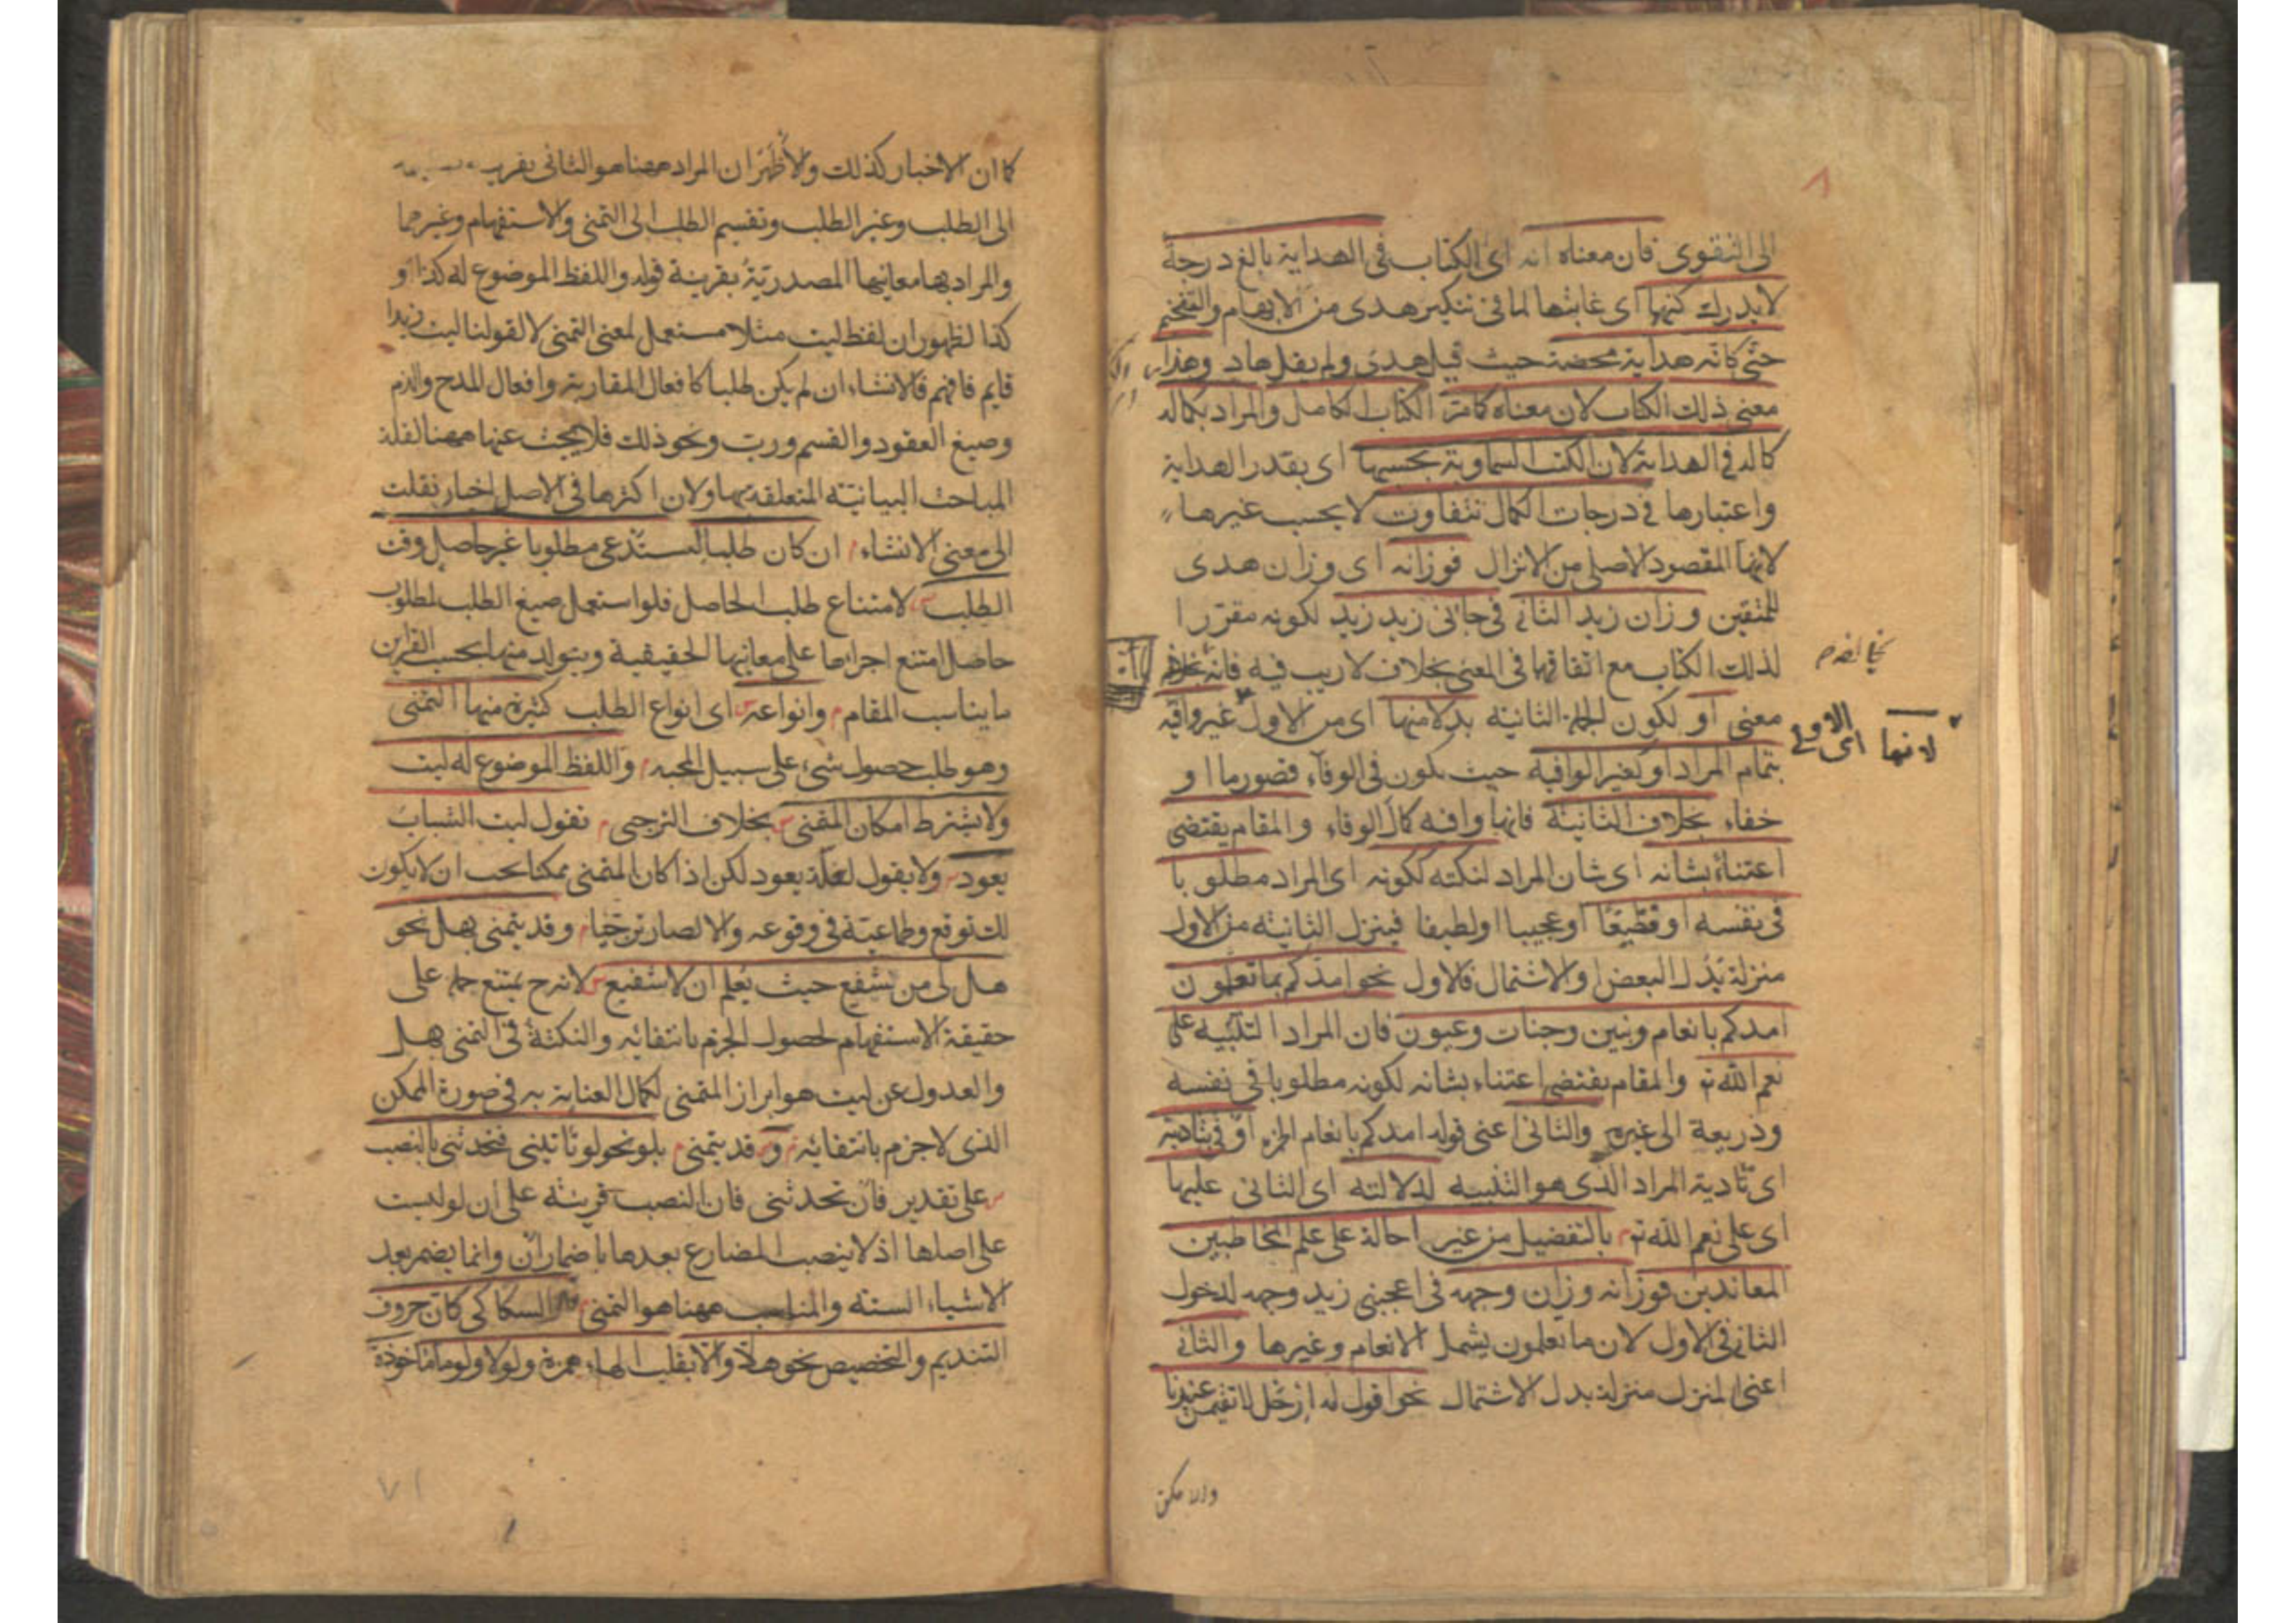 الى التقوى فان معناه انه اى الكتاب فى الهداية بالغ درجة
لا يدرك كنهها اى غايتها لما فى تنكير هدى من الابهام والتفخيم
حتى كانه هداية محضة حيث قيل هدى ولم يقل هاد وهذا
معنى ذلك الكتاب لان معناه كما مر الكتاب الكامل والمراد بكماله
كماله فى الهداية لان الكتب السماوية بحسبها اى بقدر الهداية
واعتبارها فى درجات الكمال تتفاوت لا بحسب غيرها
لانها المقصود الاصلى من الانزال فوزانه اى وزان هدى
للمتقين وزان زيد الثانى فى جائنى زيد زيد لكونه مقررا
لذلك الكتاب مع اتفاقهما فى المعنى بخلاف لا ريب فيه فانه يخالفه
معنى او لكون الجملة الثانية بدلا منها اى من الاولى غير وافية
لانها اى الاولى
بتمام المراد او كغير الوافية حيث يكون فى الوفاء قصور ما او
خفاء بخلاف الثانية فانها وافية كمال الوفاء والمقام يقتضى
اعتناء بشانه اى شان المراد لنكتة ككونه اى المراد مطلوبا
فى نفسه او فظيعا او عجيبا او لطيفا فينزل الثانية من الاولى
منزلة بدل البعض او الاشتمال فالاول نحو امدكم بما تعلمون
امدكم بانعام وبنين وجنات وعيون فان المراد التنبيه على
نعم الله تع والمقام يقتضى اعتناء بشانه لكونه مطلوبا فى نفسه
وذريعة الى غيره والثانى اعنى قوله امدكم بانعام الخ او فى بتاديته
اى تادية المراد الذى هو التنبيه لدلالته اى الثانى عليها
اى على نعم الله تع بالتفصيل من غير احالة على علم المخاطبين
المعاندين فوزانه وزان وجهه فى اعجبنى زيد وجهه لدخول
الثانى فى الاول لان ما تعلمون يشمل الانعام وغيرها والثانى
اعنى المنزل منزلة بدل الاشتمال نحو اقول له ارحل لا تقيمن عندنا
والا فكن
كما ان الاخبار كذلك والاظهر ان المراد ههنا هو الثانى بقرينة
الى الطلب وغير الطلب وتقسيم الطلب الى التمنى والاستفهام وغيرهما
والمراد بها معانيها المصدرية بقرينة قوله واللفظ الموضوع له كذا و
كذا لظهور ان لفظ ليت مثلا مستعمل لمعنى التمنى لا لقولنا ليت زيدا
قايم فافهم فالانشاء ان لم يكن طلبا كافعال المقاربة وافعال المدح والذم
وصيغ العقود والقسم ورب ونحو ذلك فلا يبحث عنها ههنا لقلة
المباحث البيانية المتعلقة بها ولان اكثرها فى الاصل اخبار نقلت
الى معنى الانشاء ان كان طلبا استدعى مطلوبا غير حاصل وقت
الطلب لامتناع طلب الحاصل فلو استعمل صيغ الطلب لمطلوب
حاصل امتنع اجراؤها على معانيها الحقيقية ويتولد منها بحسب القراين
ما يناسب المقام وانواعه اى انواع الطلب كثيرة منها التمنى
وهو طلب حصول شىء على سبيل المحبة واللفظ الموضوع له ليت
ولا يشترط امكان المتمنى بخلاف الترجى تقول ليت الشباب
يعود ولا يقول لعله يعود لكن اذا كان المتمنى ممكنا يجب ان لا يكون
لك توقع وطماعية فى وقوعه والا لصار ترجيا وقد يتمنى بهل نحو
هل لى من شفيع حيث يعلم ان لا شفيع لانه ح يمتنع حمله على
حقيقة الاستفهام لحصول الجزم بانتفائه والنكتة فى التمنى بهل
والعدول عن ليت هو ابراز المتمنى لكمال العناية به فى صورة الممكن
الذى لا جزم بانتفائه و قد يتمنى بلو نحو لو تاتينى فتحدثنى بالنصب
على تقدير فان تحدثنى فان النصب قرينة على ان لو ليست
على اصلها اذ لا ينصب المضارع بعدها باضمار ان وانما يضمر بعد
الاشياء الستة والمناسب ههنا هو التمنى قال السكاكى كان حروف
التنديم والتحضيض نحو هلا والا بقلب الهاء همزة ولولا ولوما ماخوذة
٧١